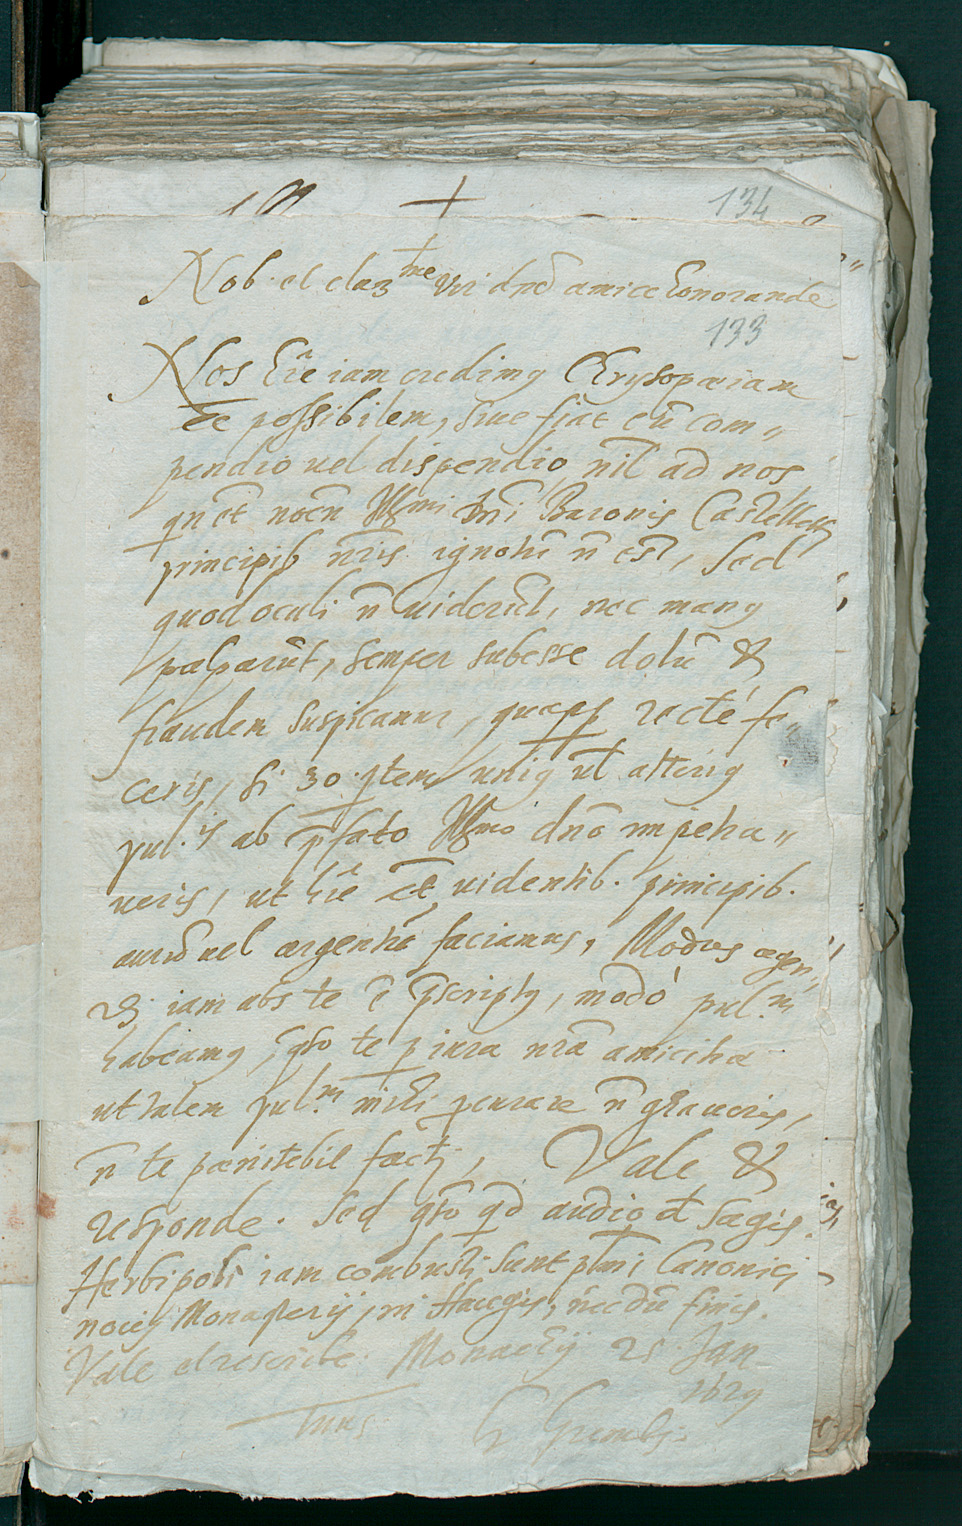 134
Nob. et claris me Vir dnē amice honorande
133
Nos hīc iam credimꝰ Chrysopœiam
ēe possibilem, siue fiat cū com„
pendio uel dispendio, nīl ad nos
principib nr̄is ignotū n̄ est, Sed
quod oculi n̄ uiderūt, nec manꝰ
palparūt, semper subesse dolū &
fraudem suspicamur, recté fe„
ceris, si 30 ptem uniꝰ ul̄ alteriꝰ
pul.is ab p̄fato Ill̄mo dnō impetra„
ueris, ut hīc ēt uidentib. principib.
aurū uel argentū faciamus, Modus agen„
di iam abs te ē p̄scriptꝰ, modó pul.m
habeamꝰ, qso te p iura nrā amicitiæ
ut talem pul.m mihi pcurare n̄ graueris,
n̄ te pænitebit facti, Vale &
responde. Sed qso qd audio d̄ sagis.
Herbipoli iam combusti sunt Canonici
noui Monasterij, in Haugis, necdū finis.
Vale et rescribe. Monachij 25 Jan
1629
Tuus